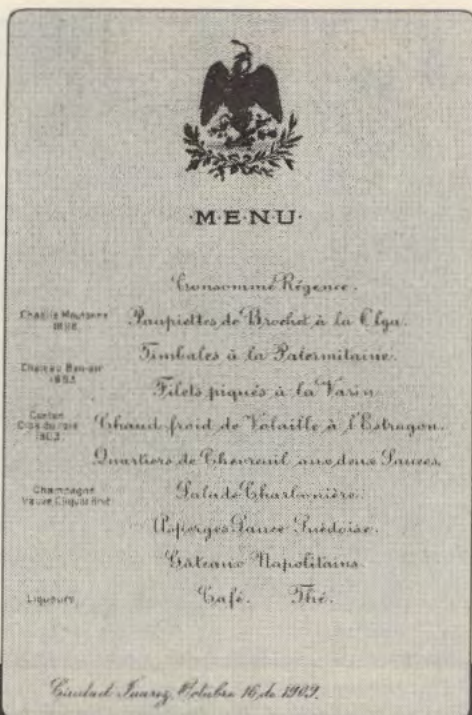 ·M·E·N·U·
Consommé Régence.
Chablis Moutonne
Paupiettes de Brochet à la Olga.
Timbales à la Palermitaine.
Chateau
Filets piqués à la Varin
Chaud-froid de Volaille à l'Estragon.
Quartiers de Chevreuil aux deux Sauces.
Champagne
Veuve Cliquot Brut
Salade Charbonière.
Asperges Sauce Suédoise.
Gâteaux Napolitains.
Liqueurs
Café. Thé.
Ciudad Juarez, Octubre 16 de 1909.